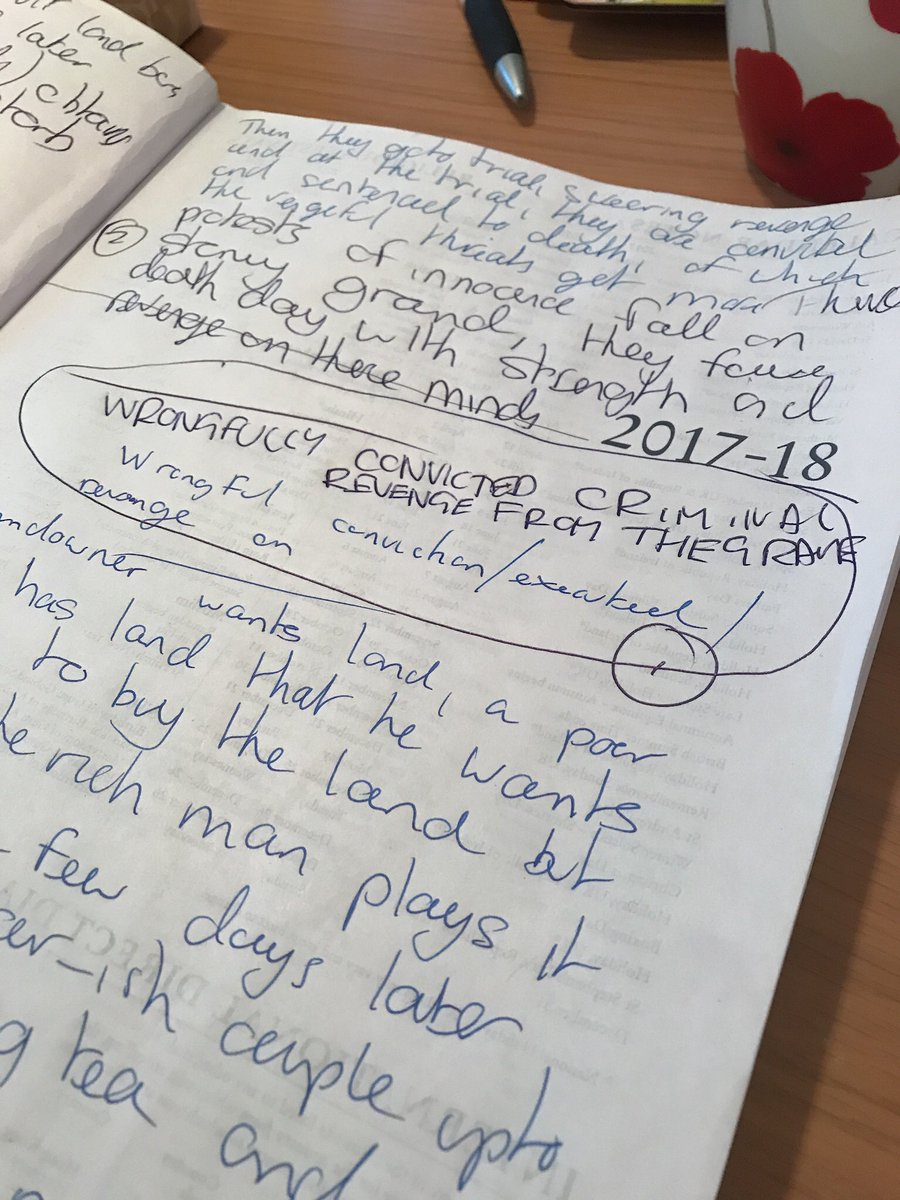 land
later
Then they goto trial, sweering revenge
and at the trial, they are convicted
and sentenced to death, of which
the vengeful threats get more
② protests of innocence fall on
stoney ground, they face
death day with strength and
revenge on there minds
2017-18
WRONGFULLY CONVICTED CRIMINAL
REVENGE FROM THE GRAVE
Wrongful conviction/executed/
revenge on
wants land, a poor
has land that he wants
to buy the land but
rich man plays it
few days later
-ish couple upto
tea and